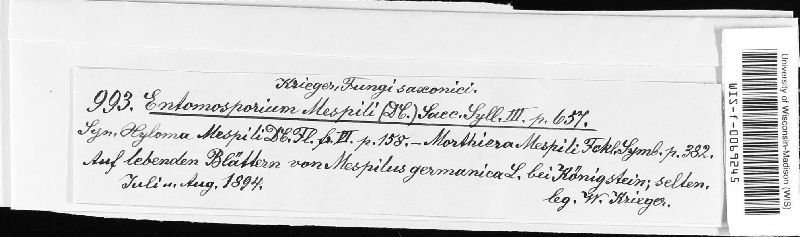 Krieger, Fungi saxonici.
993. Entomosporium Mespili (DC.) Sacc. Syll. III. p. 657.
Syn. Xyloma Mespili DC. Fl. fr. VI. p. 158. – Morthiera Mespili Fckl. Symb. p. 382.
Auf lebenden Blättern von Mespilus germanica L. bei Königstein; selten.
Juli u. Aug. 1894.
leg. W. Krieger.
University of Wisconsin-Madison (WIS)
WIS-f-0069245